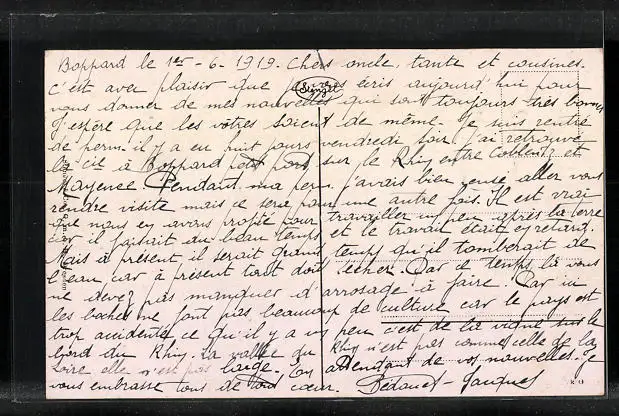 Boppard le 1er - 6. 1919. Chers oncle, tante et cousines.
C'est avec plaisir que je vous écris aujourd'hui pour
vous donner de mes nouvelles qui sont toujours très bonnes
J'espère que les vôtres soient de même. Je suis rentré
de perm. il y a eu huit jours vendredi soir. j'ai retrouvé
à Boppard sur le Rhin entre Coblentz et
Mayence Pendant ma perm. j'avais bien pensé aller vous
rendre visite mais ce sera pour une autre fois. Il est vrai
que nous en avons profité pour travailler un peu après la terre
car il faisait du beau temps et le travail était en retard.
Mais à présent il serait grand temps qu'il tomberait de
l'eau car à présent tout doit sécher. Par ce temps là vous
ne devez pas manquer d'arrosage à faire. Par ici
les boches ne font pas beaucoup de culture car le pays est
trop accidenté ce qu'il y a un peu c'est de la vigne sur le
bord du Rhin. la vallée du Rhin n'est pas comme celle de la
Loire elle n'est pas large. En attendant de vos nouvelles. Je
vous embrasse tous de tout cœur. Jacques
Stengel